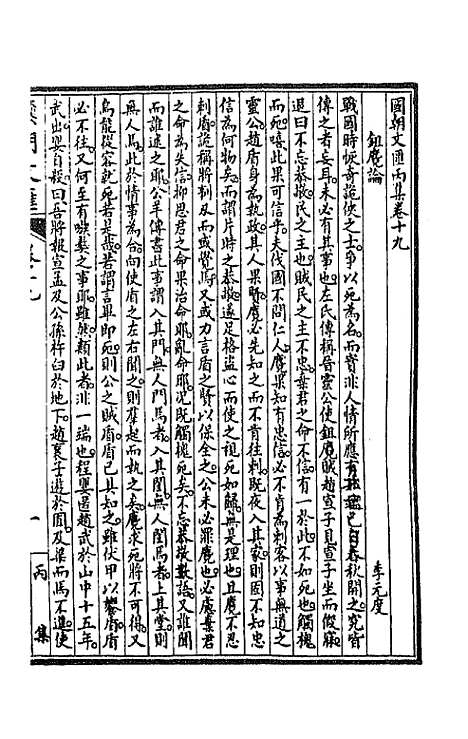 國朝文匯丙集卷十九
鉏麑論
李元度
戰國時便奇詭俠之士爭以死為名而實非人情所應有其端已自春秋開之究皆
傳之者妄耳未必有其事也左氏傳稱晉靈公使鉏麑賊趙宣子見宣子坐而假寐
退曰不忘恭敬民之主也賊民之主不忠棄君之命不信有一於此不如死也觸槐
而死嘻此果可信乎夫伐國不問仁人麑果知有忠信必不肯為刺客以事無道之
靈公趙盾身為執政其人果賢麑必先知之而不肯往刺既夜入其家則固不知忠
信為何物矣而謂片時之恭敬遂足格盜心而使之視死如歸無是理也且麑不忍
刺盾詭稱將刺及而或覺焉又或力言盾之賢以保全之公未必罪麑也必慮棄君
之命為失信抑思君之命果治命耶亂命耶況既觸槐死矣不忘恭敬數語又誰聞
而誰述之耶公羊傳書此事謂入其門無人門焉者入其閨無人閨焉者上其堂則
無人焉此於情事為合向使盾之左右聞之則羣起而執之矣麑求死將不可得又
烏能從容就死若是哉若謂言畢即死則公之賊盾盾已具知之雖伏甲以攀盾盾
必不往又何至有嗾獒之事耶雖然類此者非一端也程嬰匿趙武於山中十五年
武出嬰自殺曰吾將報宣孟及公孫杵臼於地下趙襄子遊於囿及梁而馬不進使
國朝文匯
卷十九
一
丙集